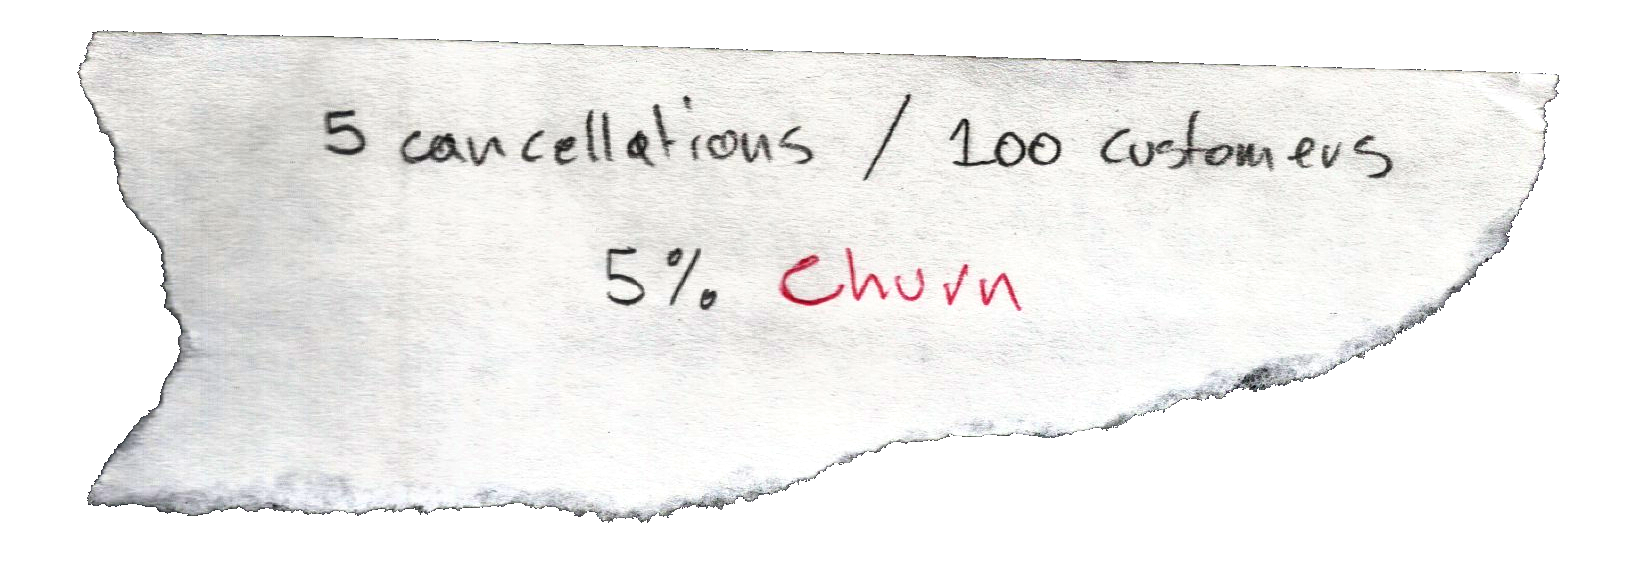 5 cancellations / 100 customers
5% Churn